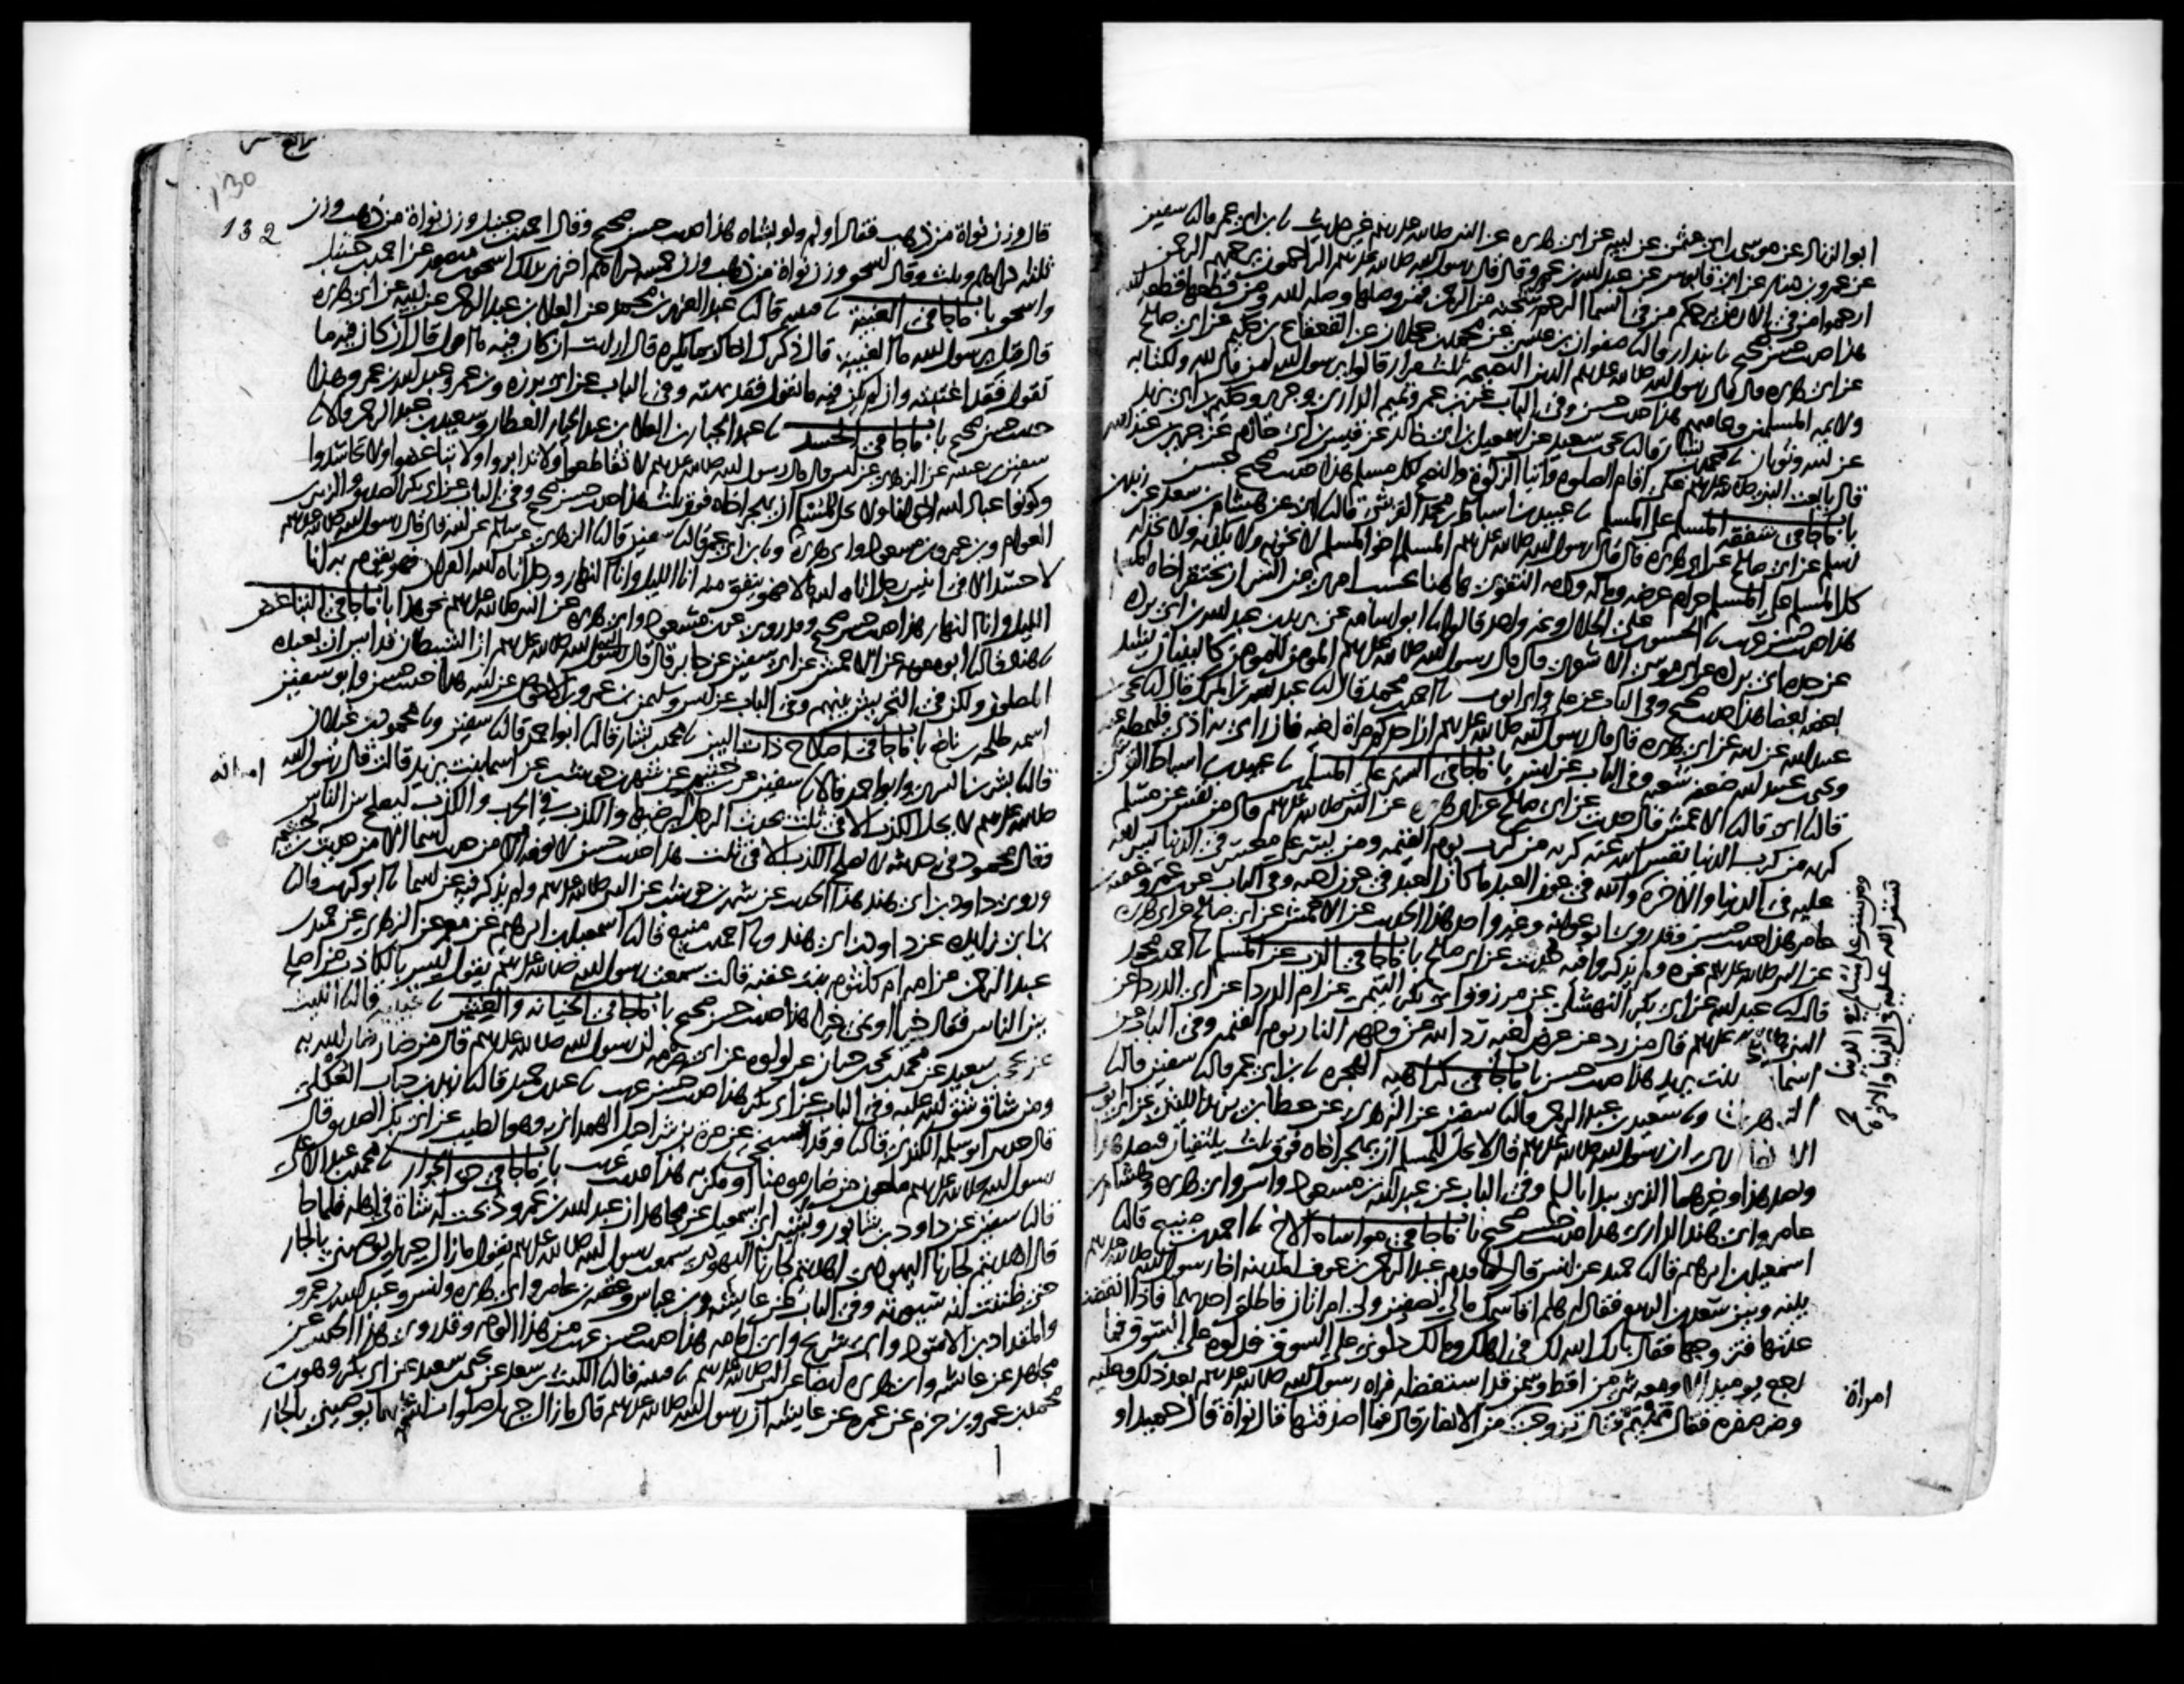 ابو الزناد عن موسى ابن ابى عثمن عن ابيه عن ابى هريره عن النبى صلى الله عليه وسلم غير حديث نا ابن ابى عمر قال نا سفين
عن عمرو بن دينار عن ابى قابوس عن عبد الله بن عمرو قال قال رسول الله صلى الله عليه وسلم الراحمون يرحمهم الرحمن
ارحموا من فى الارض يرحمكم من فى السما الرحم شجنه من الرحمن فمن وصلها وصله الله ومن قطعها قطعه الله
هذا حديث حسن صحيح نا بندار قال نا صفوان بن عيسى عن محمد بن عجلان عن القعقاع بن حكيم عن ابى صالح
عن ابى هريره قال قال رسول الله صلى الله عليه وسلم الدين النصيحه ثلث مرار قالوا يرسول الله لمن قال لله ولكتابه
ولايمه المسلمين وعامتهم هذا حديث حسن وفى الباب عن بن عمر وتميم الدارى وجرير وحكيم بن ابى يزيد
عن ابيه وثوبان نا محمد بن بشار قال نا يحيى بن سعيد عن اسمعيل بن ابى خالد عن قيس بن ابى حازم عن جرير بن عبد الله
قال بايعت النبى صلى الله عليه وسلم على اقام الصلوه وايتا الزكوة والنصح لكل مسلم هذا حديث صحيح حسن
باب ما جا فى شفقه المسلم على المسلم نا عبيد بن اسباط بن محمد القرشى قال نا ابى عن هشام بن سعد عن زيد بن
اسلم عن ابى صالح عن ابى هريره قال قال رسول الله صلى الله عليه وسلم المسلم اخو المسلم لا يخونه ولا يكذبه ولا يخذله
كل المسلم على المسلم حرام عرضه وماله ودمه التقوى هاهنا بحسب امرى من الشر ان يحتقر اخاه المسلم
هذا حديث حسن غريب نا الحسن بن على الخلال وغير واحد قالوا نا ابو اسامه عن بريد بن عبد الله بن ابى برده
عن جده ابى برده عن ابى موسى الاشعرى قال قال رسول الله صلى الله عليه وسلم المومن للمومن كالبنيان يشد
بعضه بعضا هذا حديث صحيح وفى الباب عن على وابى ايوب نا احمد بن محمد قال نا عبد الله بن المبرك قال نا يحيى بن
عبيد الله عن ابيه عن ابى هريره قال قال رسول الله صلى الله عليه وسلم ان احدكم مراة اخيه فان راى به اذى فليمطه عنه
ويحيى بن عبيد الله ضعفه شعبه وفى الباب عن انس باب ما جا فى الستر على المسلمين نا عبيد بن اسباط القرشى
قال نا ابى قال نا الاعمش قال حدثت عن ابى صالح عن ابى هريره عن النبى صلى الله عليه وسلم قال من نفس عن مسلم
كربه من كرب الدنيا نفس الله عنه كربه من كرب يوم القيمه ومن يسر على معسر فى الدنيا يسر الله
عليه فى الدنيا والاخرة والله فى عون العبد ما كان العبد فى عون اخيه وفى الباب عن بن عمر وعقبه بن
عامر هذا حديث حسن وقد روى ابو عوانه وغير واحد هذا الحديث عن الاعمش عن ابى صالح عن ابى هريره
عن النبى صلى الله عليه وسلم نحوه ولم يذكروا فيه حدثت عن ابى صالح باب ما جا فى الذب عن المسلم نا احمد بن محمد
قال نا عبد الله عن ابى بكر النهشلى عن مرزوق ابى بكر التيمى عن ام الدردا عن ابى الدردا عن
النبى صلى الله عليه وسلم قال من رد عن عرض اخيه رد الله عن وجهه النار يوم القيمه وفى الباب عن
اسما بنت يزيد هذا حديث حسن باب ما جا فى كراهيه الهجره نا بن ابى عمر قال نا سفين قال نا
الزهرى ونا سعيد بن عبد الرحمن قال نا سفين عن الزهرى عن عطا بن يزيد الليثى عن ابى ايوب
الانصارى ان رسول الله صلى الله عليه وسلم قال لا يحل للمسلم ان يهجر اخاه فوق ثلث يلتقيان فيصد هذا
ويصد هذا وخيرهما الذى يبدا بالسلم وفى الباب عن عبد الله بن مسعود وانس وابى هريره وهشام بن
عامر وابى هند الدارى هذا حديث حسن صحيح باب ما جا فى مواساه الاخ نا احمد بن منيع قال نا
اسمعيل بن ابرهيم قال نا حميد عن انس قال لما قدم عبد الرحمن بن عوف المدينه اخا رسول الله صلى الله عليه وسلم
بينه وبين سعد بن الربيع فقال له هلم اقاسمك مالى نصفين ولى امراتان فاطلق احداهما فاذا انقضت
عدتها فتزوجها فقال بارك الله لك فى اهلك ومالك دلونى على السوق فدلوه على السوق فما
رجع يوميذ الا ومعه شى من اقط وسمن قد استفضله فراه رسول الله صلى الله عليه وسلم بعد ذلك وعليه
وضر صفره فقال مهيم فقال تزوجت من الانصار قال فما اصدقتها قال نواة قال حميد او
ومن ستر على مسلم فى الدنيا
ستر الله عليه فى الدنيا والاخرة
صح
امراة
130
132
قال وزن نواة من ذهب فقال اولم ولو بشاه هذا حديث حسن صحيح وقال احمد بن حنبل وزن نواة من ذهب وزن
ثلثه دراهم وثلث وقال اسحق وزن نواة من ذهب وزن خمسه دراهم اخبرنى بذلك اسحق بن منصور عن احمد بن حنبل
واسحق باب ما جا فى الغيبه نا قتيبه قال نا عبد العزيز بن محمد عن العلا بن عبد الرحمن عن ابيه عن ابى هريره
قال قيل يرسول الله ما الغيبه قال ذكرك اخاك بما يكره قال ارايت ان كان فيه ما اقول قال ان كان فيه ما
تقول فقد اغتبته وان لم يكن فيه ما تقول فقد بهته وفى الباب عن ابى برزه وبن عمر وعبد الله بن عمرو وهذا
حديث حسن صحيح باب ما جا فى الحسد نا عبد الجبار بن العلا بن عبد الجبار العطار وسعيد بن عبد الرحمن قالا نا
سفين بن عيينه عن الزهرى عن انس قال قال رسول الله صلى الله عليه وسلم لا تقاطعوا ولا تدابروا ولا تباغضوا ولا تحاسدوا
وكونوا عباد الله اخوانا ولا يحل لمسلم ان يهجر اخاه فوق ثلث هذا حديث حسن صحيح وفى الباب عن ابى بكر الصديق والزبير بن
العوام وبن عمر وبن مسعود وابى هريره ونا بن ابى عمر قال نا سفين قال نا الزهرى عن سالم عن ابيه قال قال رسول الله صلى الله عليه وسلم
لا حسد الا فى اثنين رجل اتاه الله مالا فهو ينفق منه انا الليل وانا النهار ورجل اتاه الله القران فهو يقوم به انا
الليل وانا النهار هذا حديث حسن صحيح وقد روى عن بن مسعود وابى هريره عن النبى صلى الله عليه وسلم نحو هذا باب ما جا فى التباغض
نا هناد قال نا ابو معويه عن الاعمش عن ابى سفين عن جابر قال قال رسول الله صلى الله عليه وسلم ان الشيطان قد ايس ان يعبده
المصلون ولكن فى التحريش بينهم وفى الباب عن انس وسليمن بن عمرو بن الاحوص عن ابيه هذا حديث حسن وابو سفين
اسمه طلحه بن نافع باب ما جا فى اصلاح ذات البين نا محمد بن بشار قال نا ابو احمد قال نا سفين ونا محمود بن غيلان
قال نا بشر بن السرى وابو احمد قالا نا سفين عن بن خثيم عن شهر بن حوشب عن اسما بنت يزيد قالت قال رسول الله
صلى الله عليه وسلم لا يحل الكذب الا فى ثلث يحدث الرجل ليرضيها والكذب فى الحرب والكذب ليصلح بين الناس
فقال محمود فى حديثه لا يصلح الكذب الا فى ثلث هذا حديث حسن لا نعرفه الا من حديث اسما الا من حديث بن خثيم
وروى داود بن ابى هند هذا الحديث عن شهر بن حوشب عن النبى صلى الله عليه وسلم ولم يذكر فيه عن اسما نا ابو كريب قال نا
بن ابى زايده عن داود بن ابى هند ونا احمد بن منيع قال نا اسمعيل بن ابرهيم عن معمر عن الزهرى عن حميد بن
عبد الرحمن عن امه ام كلثوم بنت عقبه قالت سمعت رسول الله صلى الله عليه وسلم يقول ليس بالكاذب من اصلح
بين الناس فقال خيرا او نمى خيرا هذا حديث حسن صحيح باب ما جا فى الخيانه والغش نا قتيبه قال نا الليث
عن يحيى بن سعيد عن محمد بن يحيى بن حبان عن لولوه عن ابى صرمه ان رسول الله صلى الله عليه وسلم قال من ضار ضار الله به
ومن شاق شق الله عليه وفى الباب عن ابى بكر هذا حديث حسن غريب نا عبد بن حميد قال نا زيد بن حباب العكلى
قال حدثنى ابو سلمه الكندى قال نا فرقد السبخى عن مره بن شراحيل الهمدانى وهو الطيب عن ابى بكر الصديق قال
رسول الله صلى الله عليه وسلم ملعون من ضار مومنا او مكر به هذا حديث غريب باب ما جا فى حق الجوار نا محمد بن عبد الاعلى
قال نا سفين عن داود بن شابور وبشير ابى اسمعيل عن مجاهد ان عبد الله بن عمرو ذبحت له شاة فى اهله فلما جا
قال اهديتم لجارنا اليهودى اهديتم لجارنا اليهودى سمعت رسول الله صلى الله عليه وسلم يقول ما زال جبريل يوصينى بالجار
حتى ظننت انه سيورثه وفى الباب عن عايشه وبن عباس وعقبه بن عامر وابى هريره وانس وعبد الله بن عمرو
والمقداد بن الاسود وابى شريح وابى امامه هذا حديث حسن غريب من هذا الوجه وقد روى هذا الحديث عن
مجاهد عن عايشه وابى هريره ايضا عن النبى صلى الله عليه وسلم نا قتيبه قال نا الليث بن سعد عن يحيى بن سعيد عن ابى بكر وهو بن
محمد بن عمرو بن حزم عن عمره عن عايشه ان رسول الله صلى الله عليه وسلم قال ما زال جبريل صلوات الله عليهما يوصينى بالجار
امراته